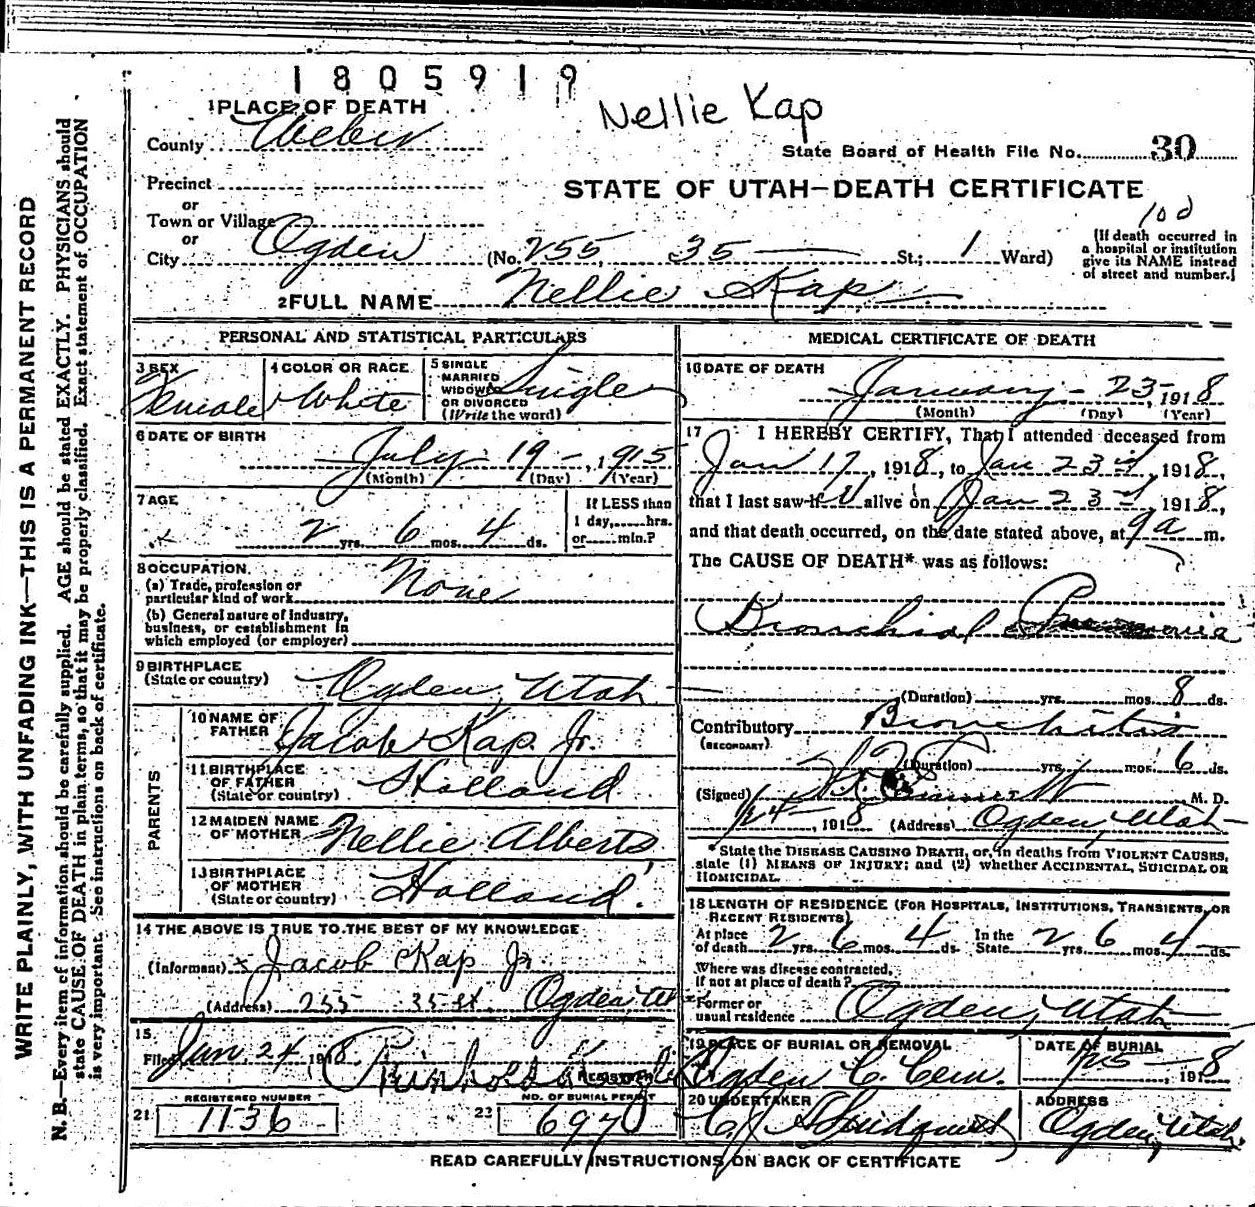 1805919
Nellie Kap
1 PLACE OF DEATH
County Weber
State Board of Health File No. 30
Precinct
STATE OF UTAH—DEATH CERTIFICATE
or
Town or Village
or
City Ogden (No. 255 35 St.; 1 Ward)
(If death occurred in
a hospital or institution
give its NAME instead
of street and number.)
2 FULL NAME Nellie Kap
PERSONAL AND STATISTICAL PARTICULARS
3 SEX Female
4 COLOR OR RACE White
5 SINGLE
MARRIED
WIDOWED
OR DIVORCED
(Write the word) Single
6 DATE OF BIRTH
July 19, 1915
(Month) (Day) (Year)
7 AGE
2 yrs. 6 mos. 4 ds.
If LESS than
1 day, hrs.
or min.?
8 OCCUPATION
(a) Trade, profession or
particular kind of work None
(b) General nature of industry,
business, or establishment in
which employed (or employer)
9 BIRTHPLACE
(State or country) Ogden, Utah
PARENTS
10 NAME OF
FATHER Jacob Kap Jr.
11 BIRTHPLACE
OF FATHER
(State or country) Holland
12 MAIDEN NAME
OF MOTHER Nellie Alberts
13 BIRTHPLACE
OF MOTHER
(State or country) Holland.
14 THE ABOVE IS TRUE TO THE BEST OF MY KNOWLEDGE
(Informant) Jacob Kap Jr
(Address) 255 35 st Ogden Ut
15
Filed Jan 24 1918
REGISTRAR
REGISTERED NUMBER
21 1136
NO. OF BURIAL PERMIT
22 6970
MEDICAL CERTIFICATE OF DEATH
16 DATE OF DEATH
January 23, 1918
(Month) (Day) (Year)
17 I HEREBY CERTIFY, That I attended deceased from
Jan 17, 1918, to Jan 23d, 1918,
that I last saw her alive on Jan 23d, 1918,
and that death occurred, on the date stated above, at 9a m.
The CAUSE OF DEATH* was as follows:
Bronchial Pneumonia
(Duration) yrs. mos. 8 ds.
Contributory Bronchitis
(SECONDARY)
(Duration) yrs. mos. 6 ds.
(Signed) M. D.
1/24, 1918 (Address) Ogden, Utah
*State the DISEASE CAUSING DEATH, or, in deaths from VIOLENT CAUSES,
state (1) MEANS OF INJURY; and (2) whether ACCIDENTAL, SUICIDAL OR
HOMICIDAL.
18 LENGTH OF RESIDENCE (FOR HOSPITALS, INSTITUTIONS, TRANSIENTS, OR
RECENT RESIDENTS)
At place In the
of death 2 yrs. 6 mos. 4 ds. State 2 yrs. 6 mos. 4 ds.
Where was disease contracted,
If not at place of death?
Former or
usual residence Ogden, Utah
19 PLACE OF BURIAL OR REMOVAL
Ogden C. Cem.
DATE OF BURIAL
1/25, 1918
20 UNDERTAKER
C. J.
ADDRESS
Ogden, Utah
READ CAREFULLY INSTRUCTIONS ON BACK OF CERTIFICATE
WRITE PLAINLY, WITH UNFADING INK—THIS IS A PERMANENT RECORD
N. B.—Every item of information should be carefully supplied. AGE should be stated EXACTLY. PHYSICIANS should
state CAUSE OF DEATH in plain terms, so that it may be properly classified. Exact statement of OCCUPATION
is very important. See instructions on back of certificate.